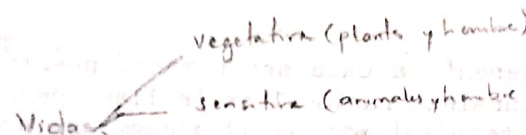 vegetativa (plantas y hombre)
sensitiva (animales y hombre
Vidas